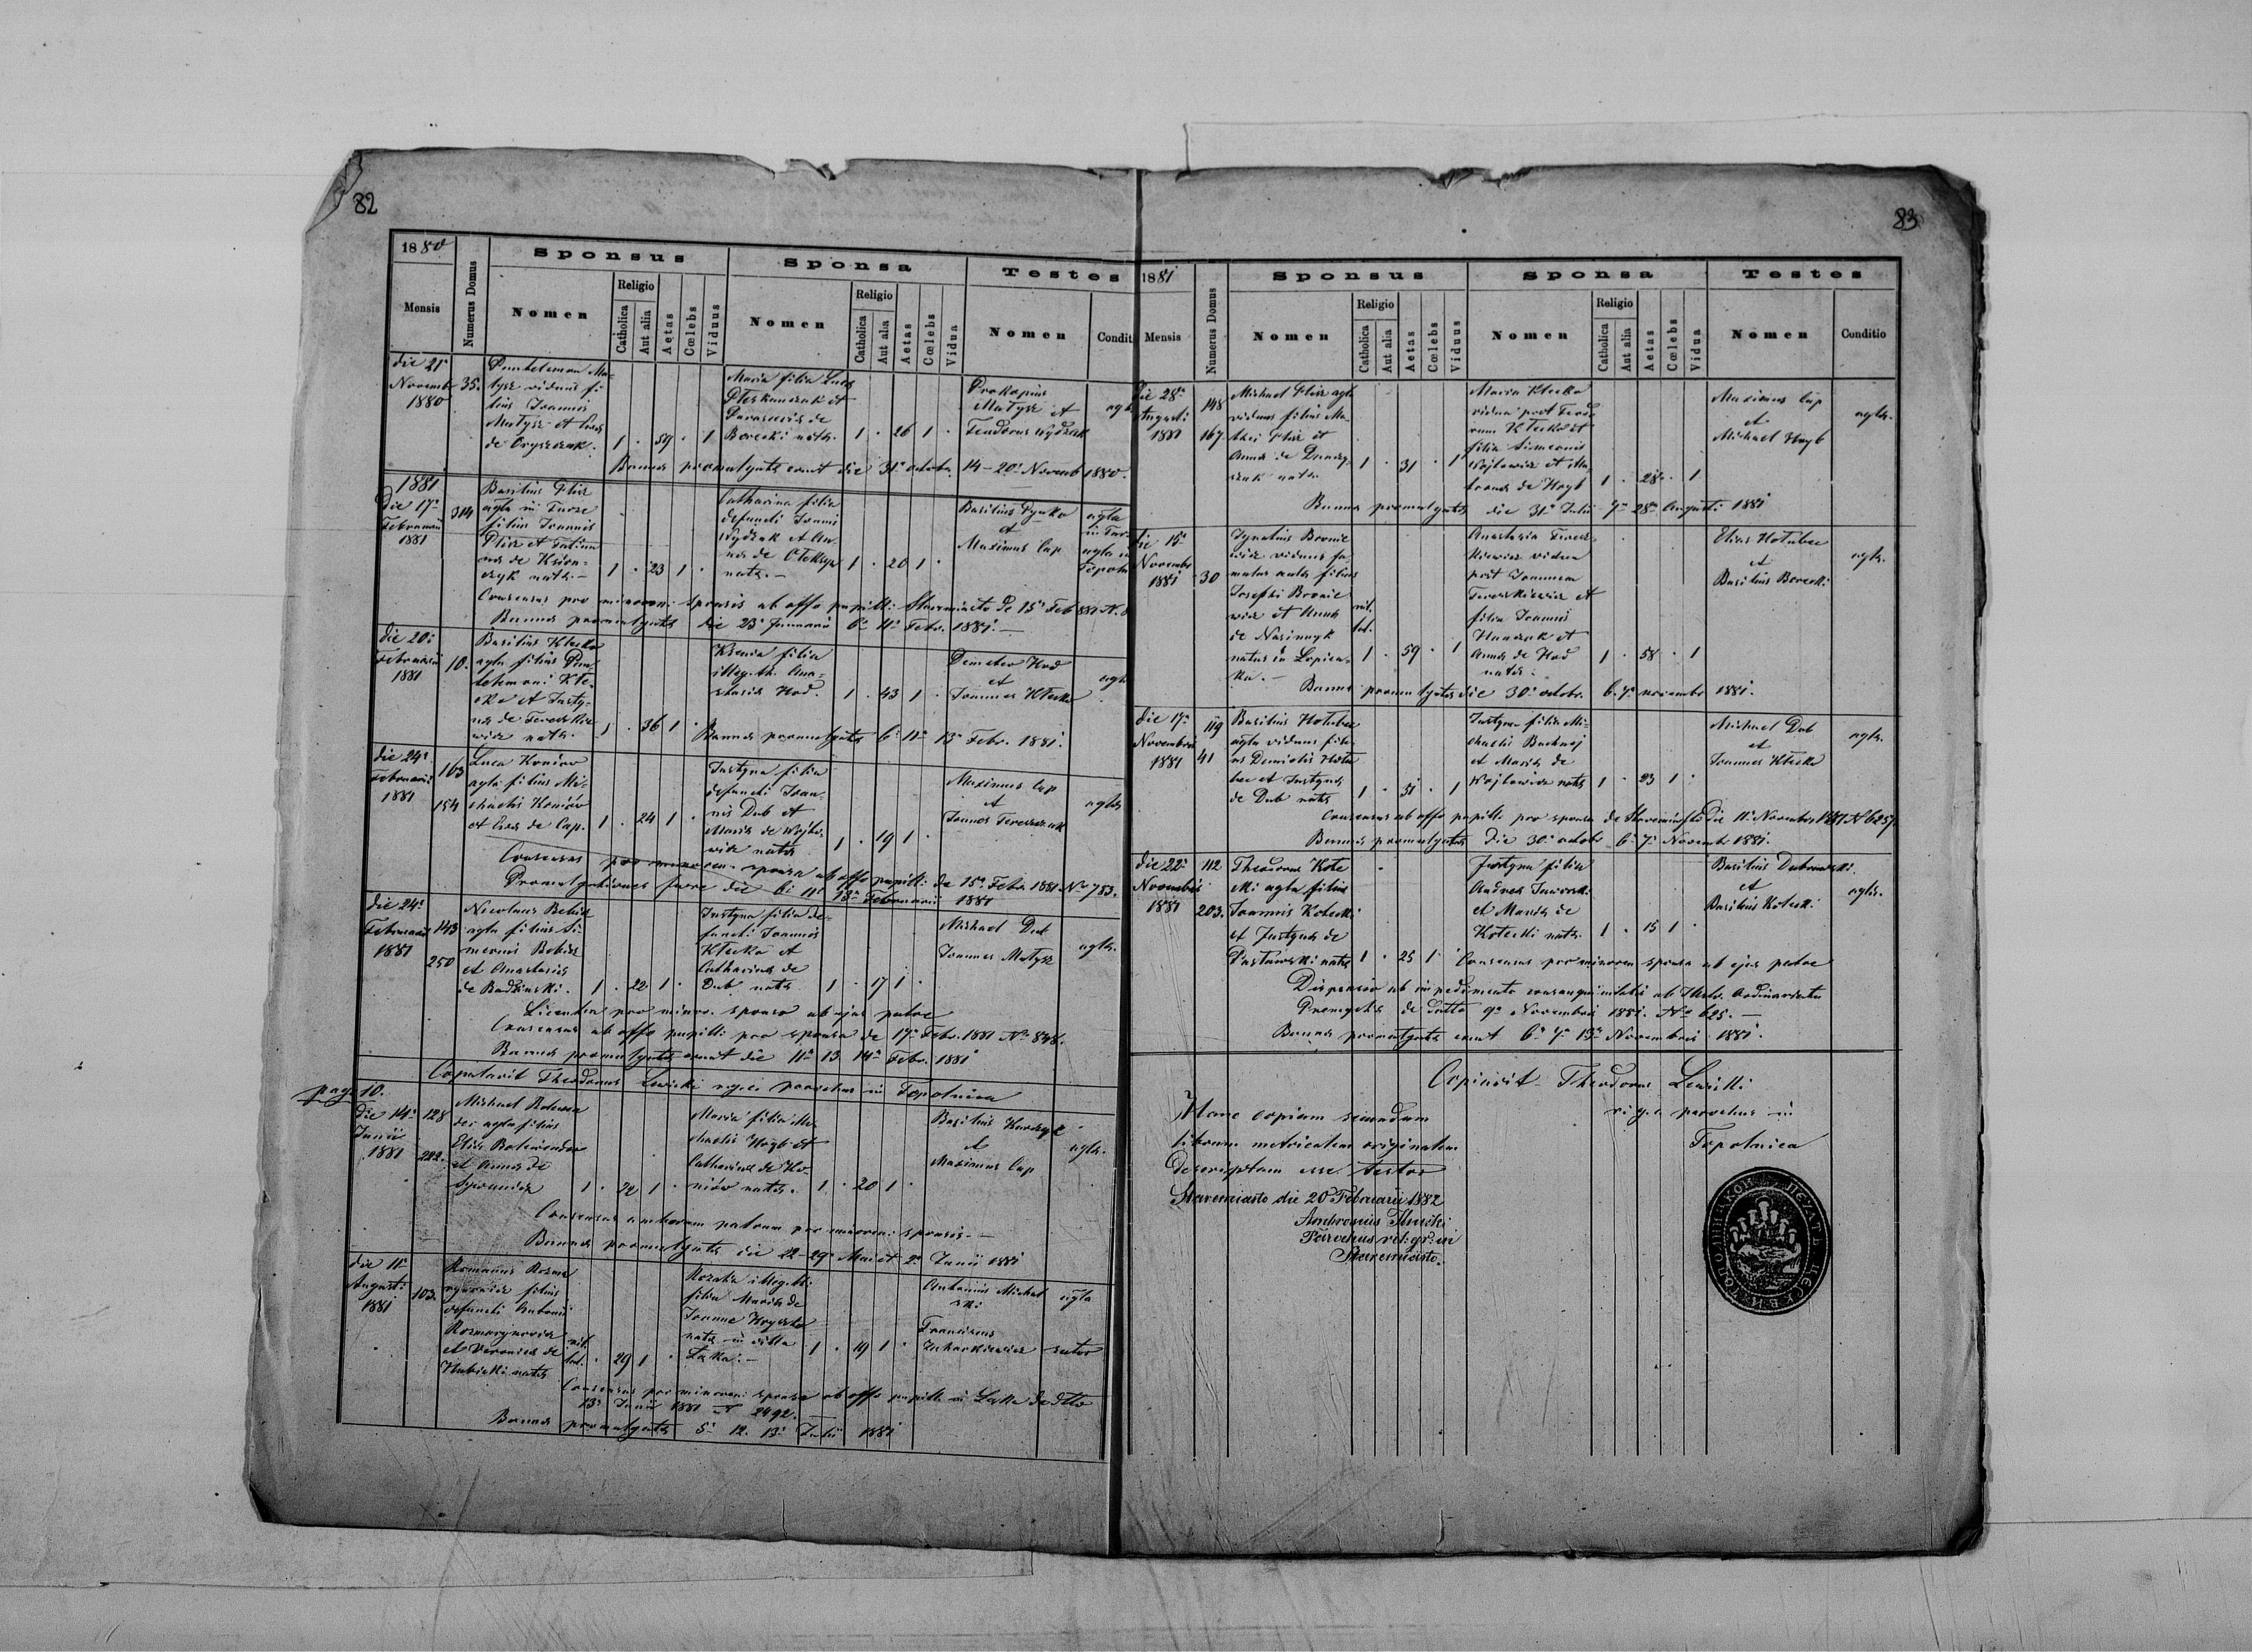 82
1880
Mensis
Numerus Domus
Sponsus
Nomen
Religio
Catholica
Aut alia
Aetas
Cœlebs
Viduus
Sponsa
Nomen
Religio
Catholica
Aut alia
Aetas
Cœlebs
Vidua
Testes
Nomen
Condit
die 21a
Novembr
1880
35.
Pantelemon Ma-
tysz viduus fi-
lius Joannis
Matysz et Evae
de Oryszczak.
1 . 59 . 1
Maria filia Lucae
Pleskanczak et
Parasceviae de
Borecki nata.
1 . 26 1 .
Prokopius
Matysz et
Teodorus Wydzak
agla
Banna promulgata erant die 31a octobr. 14-20a Novemb 1880.
1881
Die 17a
Februarii
1881
314
Basilius Plisz
agla in Turze
filius Joannis
1 . 23 1 .
Catharina filia
defuncti Joannis
Wydzak et An-
nae de Oleksyn
nata.-
1 . 20 1 .
Basilius Pynko
et
Maximus Cap
agla
Consensus pro minoren: sponsis ab offo pupilli: Staremiasto de 15a Feb 881 N.
Banna promulgata die 23a Januarii 6a 11a Febr. 1881.-
die 20a
Februarii
1881
10.
Basilius Klecko
agla filius Pan-
telemoni Kle-
cko et Justy-
nae de Tereszkie-
wicz nata.
1 . 36 1 .
Ksenia filia
illeg. th. Ana-
stasiae Hod.
1 . 43 1 .
Demeter Hod
et
Joannes Klecko
agla
Banna promulgata 6a 11a 13a Febr. 1881.
die 24a
Februarii
1881
163
154
Luca Koniow
agla filius Mi-
chaelis Koniów
et Evae de Cap.
1 . 24 1 .
Justyna filia
defuncti Joan-
nis Dub et
Mariae de Wojto-
wicz nata
1 . 19 1 .
Maximus Cap
et
Joannes Tereszczak
aglae
Consensus pro minoren. sponsa ab offo pupilli: de 15a Febr. 1881 No 783.
Promulgationes fuere die 6a 11a 13a Februarii 1881
die 24a
Februarii
1881
143
250
Nicolaus Bobisz
agla filius Si-
meonis Bobisz
et Anastasiae
de Badzinski.
1 . 22 1 .
Justyna filia de-
functi Joannis
Klecko et
Catharinae de
Dub nata
1 . 17 1 .
Michael Dub
Joannes Matysz
aglae.
Licentia pro minor. sponso ab ejus patre
Consensus ab offo pupilli: pro sponsa de 17a Febr. 1881 No 848.
Banna promulgata erant die 11a 13 14a Febr. 1881
Copulavit Theodorus Lewicki r.g.c. parochus in Topolnica
pag. 10.
Die 14a
Junii
1881
128
222.
1 . 22 1 .
Maria filia Mi-
chaelis Hryb et
Catharinae de Ko-
niów nata.
1 . 20 1 .
et
Maximus Cap
aglae.
Consensus amborum patrum pro minoren: sponsis.-
Banna promulgata die 22-29a Mai et 2a Junii 1881
die 11a
Augusti
1881
103.
Romanus Rozma-
rynowicz filius
defuncti Antonii
Rozmarynowicz
et Veronica de
Hubicki nata
rit.
lat.
. 29 1 .
Rozalia illeg. th.
filia Mariae de
nata in villa
Łąka.-
1 . 19 1 .
Antonius Michal
ski
Franciscus
Zacharkiewicz
agla
sutor
Consensus pro minoren: sponsa ab offo pupilli in Łąka de dtto
13a Junii 1881 N 2492.
Banna promulgata 5a 12. 13a Julii 1881
83
1881
Mensis
Numerus Domus
Sponsus
Nomen
Religio
Catholica
Aut alia
Aetas
Cœlebs
Viduus
Sponsa
Nomen
Religio
Catholica
Aut alia
Aetas
Cœlebs
Vidua
Testes
Nomen
Conditio
die 28a
Augusti
1881
148
167.
Michael Plisz agla
viduus filius Ma-
thei Plisz et
1 . 31 . 1
Maria Klecko
vidua post Teodo
rum Klecko et
filia Simeonis
Wojtowicz et Ma-
1 . 28. . 1
Maximus Cap
et
Michael Hryb
aglae.
Banna promulgata die 31a Julii 7a 28a Augusti 1881
die 15a
Novembr
1881
30
Ignatius Bronie
wicz viduus fa-
mulus aulae filius
Josephi Bronie
wicz et Annae
natus in Łopien-
ka.-
rit.
lat.
1 . 59 . 1
Anastasia Teresz-
kiewicz vidua
post Joannem
Tereszkiewicz et
filia Joannis
Hunczak et
Annae de Hod
nata.
1 . 58 . 1
Elias Hołubec
et
Basilius Borecki
aglae.
Banna promulgata die 30a octobr. 6. 7a novembr 1881.
die 17a
Novembris
1881
119
41
Basilius Hołubec
agla viduus fili-
us Danielis Hołu
bec et Justynae
de Dub nata
1 . 31 . 1
Justyna filia Mi-
chaelis Buchaj
et Mariae de
Wojtowicz nata
1 . 23 1 .
Michael Dub
et
Joannes Klecko
aglae.
Consensus ab offo pupilli pro sponsa de Staremiasto die 11a Novembr 1881 N 6257.
Banna promulgata die 30a octobr 6a 7a Novembr 1881.
die 22a
Novembris
1881
112
203.
Theodorus Kote
cki agla filius
Joannis Kotecki
et Justynae de
Pastawski nata
1 . 25 1
Justyna filia
Andreae Jaworski
et Mariae de
Kotecki nata.
1 . 15 1 .
Basilius Dubrowski
et
Basilius Kotecki
aglae.
Consensus pro minoren sponsa ab ejus patre
Dispensio ab impedimento consanguinitatis ab Illustr. Ordinariatu
Premysl. de datto 9a Novembris 1881. No 625.-
Banna promulgata erant 6a 7a 13a Novembris 1881.
Copiavit Theodorus Lewicki
r. g. c. parochus in
Topolnica
Hanc copiam secundum
librum metricalem originalem
descriptam esse testor
Staremiasto die 20 Februarii 1882
Ambrosius Ilnicki
Parochus rit: gr: in
Staremiasto.